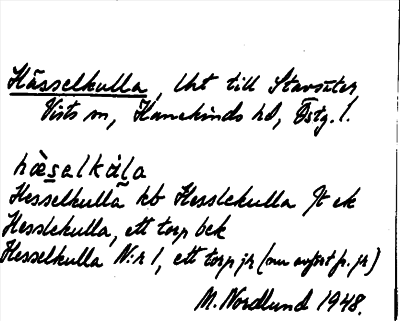 Hässelkulla, lht till Starsäter
Vists sn, Hanekinds hd, Östg. l.
hæ̀salkàla
Hesselkulla kb Hesslekulla Jt ek
Hesslekulla, ett torp bek
Hesselkulla N:r 1, ett torp jr (nu avfört fr. jr)
M. Nordlund 1948.